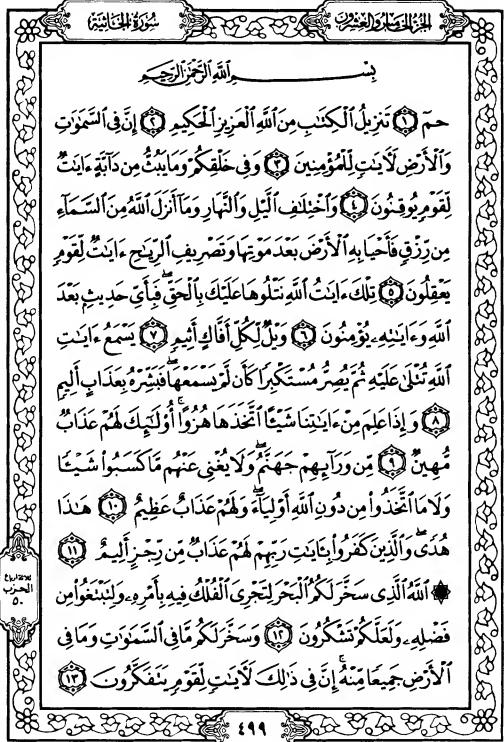 سُورَةُ الجَاثِيَةِ
الجُزْءُ الخَامِسُ وَالعِشْرُونَ
بِسْمِ اللَّهِ الرَّحْمَٰنِ الرَّحِيمِ
حمٓ ﴿١﴾ تَنزِيلُ ٱلْكِتَٰبِ مِنَ ٱللَّهِ ٱلْعَزِيزِ ٱلْحَكِيمِ ﴿٢﴾ إِنَّ فِى ٱلسَّمَٰوَٰتِ
وَٱلْأَرْضِ لَءَايَٰتٍ لِّلْمُؤْمِنِينَ ﴿٣﴾ وَفِى خَلْقِكُمْ وَمَا يَبُثُّ مِن دَآبَّةٍ ءَايَٰتٌ
لِّقَوْمٍ يُوقِنُونَ ﴿٤﴾ وَٱخْتِلَٰفِ ٱلَّيْلِ وَٱلنَّهَارِ وَمَآ أَنزَلَ ٱللَّهُ مِنَ ٱلسَّمَآءِ
مِن رِّزْقٍ فَأَحْيَا بِهِ ٱلْأَرْضَ بَعْدَ مَوْتِهَا وَتَصْرِيفِ ٱلرِّيَٰحِ ءَايَٰتٌ لِّقَوْمٍ
يَعْقِلُونَ ﴿٥﴾ تِلْكَ ءَايَٰتُ ٱللَّهِ نَتْلُوهَا عَلَيْكَ بِٱلْحَقِّ ۖ فَبِأَىِّ حَدِيثٍۭ بَعْدَ
ٱللَّهِ وَءَايَٰتِهِۦ يُؤْمِنُونَ ﴿٦﴾ وَيْلٌ لِّكُلِّ أَفَّاكٍ أَثِيمٍ ﴿٧﴾ يَسْمَعُ ءَايَٰتِ
ٱللَّهِ تُتْلَىٰ عَلَيْهِ ثُمَّ يُصِرُّ مُسْتَكْبِرًا كَأَن لَّمْ يَسْمَعْهَا ۖ فَبَشِّرْهُ بِعَذَابٍ أَلِيمٍ
﴿٨﴾ وَإِذَا عَلِمَ مِنْ ءَايَٰتِنَا شَيْـًٔا ٱتَّخَذَهَا هُزُوًا ۚ أُو۟لَٰٓئِكَ لَهُمْ عَذَابٌ
مُّهِينٌ ﴿٩﴾ مِّن وَرَآئِهِمْ جَهَنَّمُ ۖ وَلَا يُغْنِى عَنْهُم مَّا كَسَبُوا۟ شَيْـًٔا
وَلَا مَا ٱتَّخَذُوا۟ مِن دُونِ ٱللَّهِ أَوْلِيَآءَ ۖ وَلَهُمْ عَذَابٌ عَظِيمٌ ﴿١٠﴾ هَٰذَا
هُدًى ۖ وَٱلَّذِينَ كَفَرُوا۟ بِـَٔايَٰتِ رَبِّهِمْ لَهُمْ عَذَابٌ مِّن رِّجْزٍ أَلِيمٌ ﴿١١﴾
۞ ٱللَّهُ ٱلَّذِى سَخَّرَ لَكُمُ ٱلْبَحْرَ لِتَجْرِىَ ٱلْفُلْكُ فِيهِ بِأَمْرِهِۦ وَلِتَبْتَغُوا۟ مِن
فَضْلِهِۦ وَلَعَلَّكُمْ تَشْكُرُونَ ﴿١٢﴾ وَسَخَّرَ لَكُم مَّا فِى ٱلسَّمَٰوَٰتِ وَمَا فِى
ٱلْأَرْضِ جَمِيعًا مِّنْهُ ۚ إِنَّ فِى ذَٰلِكَ لَءَايَٰتٍ لِّقَوْمٍ يَتَفَكَّرُونَ ﴿١٣﴾
ثلاثة أرباع
الحزب
٥٠
٤٩٩